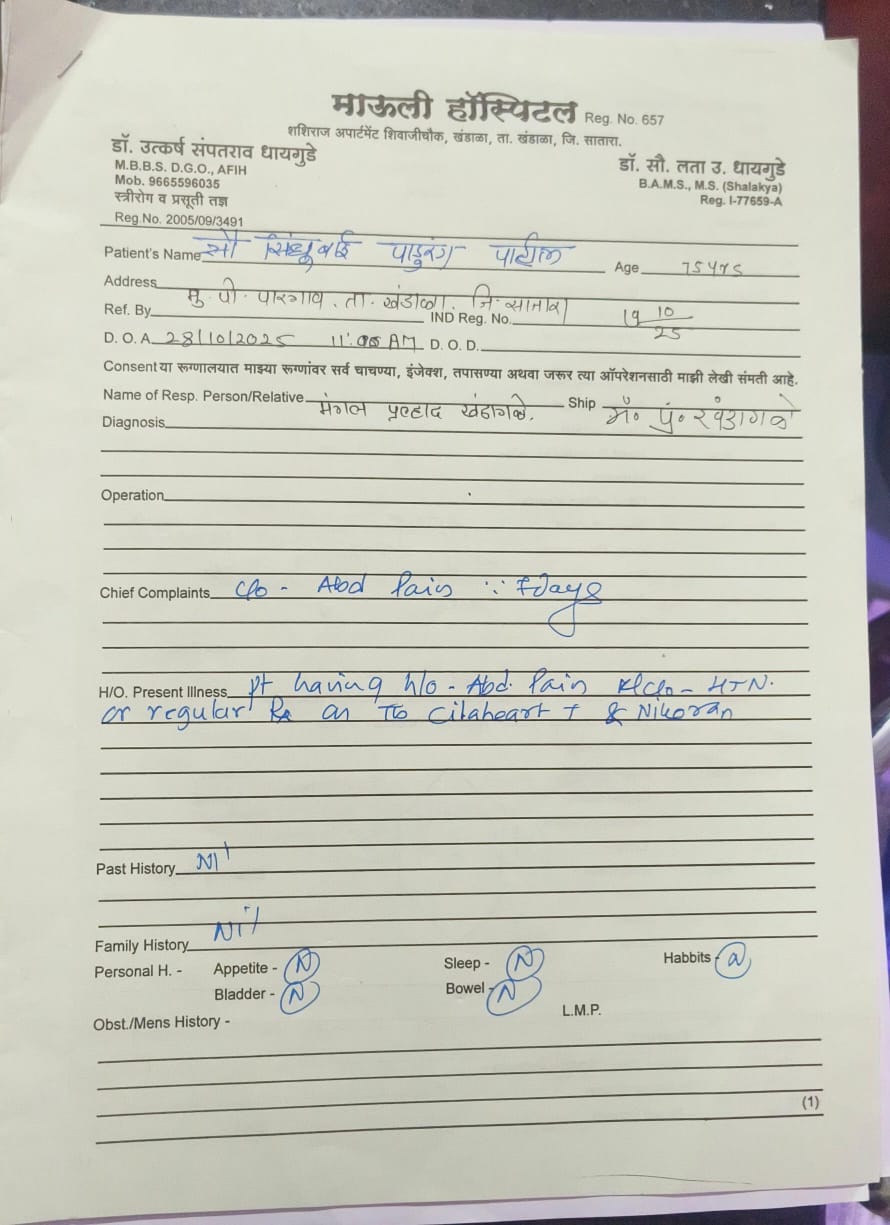 माऊली हॉस्पिटल Reg. No. 657
शशिराज अपार्टमेंट शिवाजीचौक, खंडाळा, ता. खंडाळा, जि. सातारा.
डॉ. उत्कर्ष संपतराव धायगुडे
M.B.B.S. D.G.O., AFIH
Mob. 9665596035
स्त्रीरोग व प्रसूती तज्ञ
Reg.No. 2005/09/3491
डॉ. सौ. लता उ. धायगुडे
B.A.M.S., M.S. (Shalakya)
Reg. I-77659-A
Patient's Name सौ सिंधूबाई पाडुरंग पाटील Age 75 yrs
Address मु. पो. पारगाव. ता. खंडाळा. जि. सातारा
Ref. By IND Reg. No. 19 10/25
D. O. A 28/10/2025 11:00 AM D. O. D.
Consent या रूग्णालयात माझ्या रूग्णांवर सर्व चाचण्या, इंजेक्श, तपासण्या अथवा जरूर त्या ऑपरेशनसाठी माझी लेखी संमती आहे.
Name of Resp. Person/Relative मंगल प्रल्हाद खंडागळे. Ship मं. प्र. खंडागळे
Diagnosis
Operation
Chief Complaints C/o - Abd Pain ∵ 7days
H/O. Present Illness pt having h/o - Abd. Pain K/c/o - HTN.
or regular Rx on Tb Cilaheart T & Nikoran
Past History Nil
Family History Nil
Personal H. - Appetite - N Sleep - N Habbits - N
Bladder - N Bowel - N
L.M.P.
Obst./Mens History -
(1)